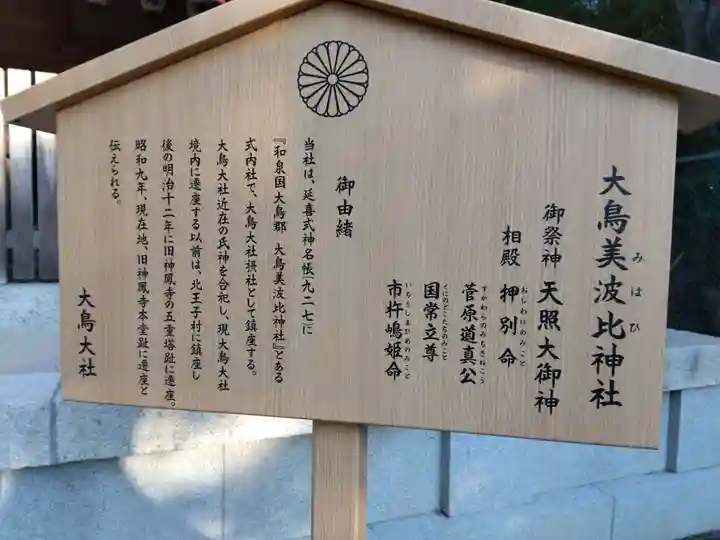 大鳥美波比神社
みはひ
御祭神 天照大御神
相殿 押別命
おしわけのみこと
菅原道真公
すがわらのみちざねこう
国常立尊
くにのとこたちのみこと
市杵嶋姫命
いちきしまひめのみこと
御由緒
当社は、延喜式神名帳(九二七)に
『和泉国大鳥郡 大鳥美波比神社』とある
式内社で、大鳥大社摂社として鎮座する。
大鳥大社近在の氏神を合祀し、現大鳥大社
境内に遷座する以前は、北王子村に鎮座し
後の明治十二年に旧神鳳寺の五重塔趾に遷座。
昭和九年、現在地、旧神鳳寺本堂趾に遷座と
伝えられる。
大鳥大社